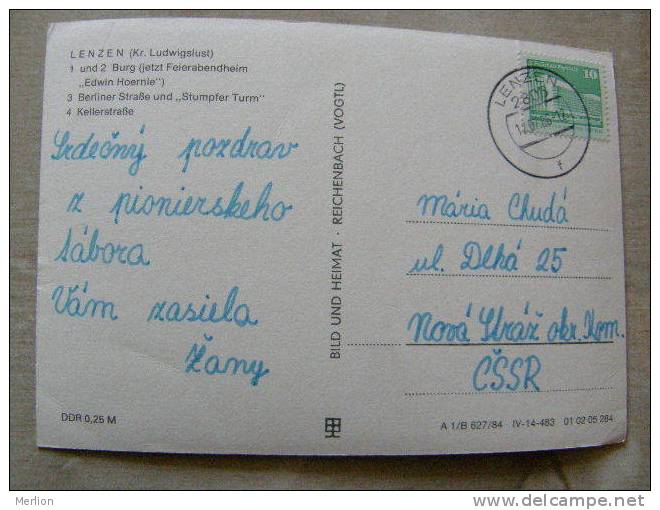 LENZEN (Kr. Ludwigslust)
1 und 2 Burg (jetzt Feierabendheim
„Edwin Hoernle")
3 Berliner Straße und „Stumpfer Turm"
4 Kellerstraße
Srdečný pozdrav
z pionierskeho
tábora
Vám zasiela
Žany
DDR 0,25 M
BILD UND HEIMAT · REICHENBACH (VOGTL)
LENZEN
10
Mária Chudá
ul. Dlhá 25
Nová Stráž okr. Kom.
ČSSR
A 1/B 627/84 IV-14-483 01 02 05 284
Merlion
http://www.delcampe.net